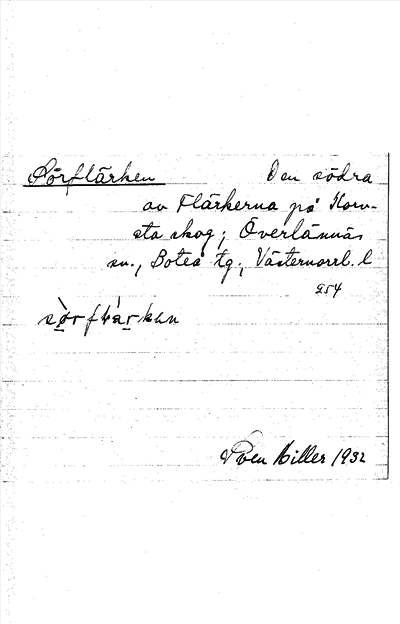 Sörflärken Den södra
av Flärkerna på Korv-
sta skog; Överlännäs
sn., Boteå tg., Västernorrl. l
254
Sven Hiller 1932